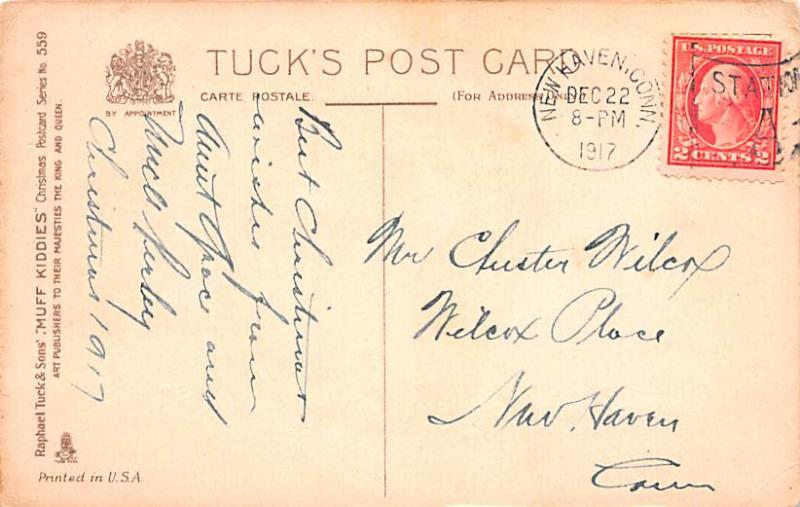 TUCK'S POST CARD
CARTE POSTALE.
(For Address
BY APPOINTMENT
NEW HAVEN, CONN.
DEC 22
8-PM
1917
U.S. POSTAGE
2 CENTS 2
STATION
A
Raphael Tuck & Sons' "MUFF KIDDIES" Christmas Postcard Series No. 559
ART PUBLISHERS TO THEIR MAJESTIES THE KING AND QUEEN.
Best Christmas
wishes from
Aunt Grace and
Uncle
Christmas 1917
Mr Chester Wilcox
Wilcox Place
New Haven
Conn
Printed in U.S.A.